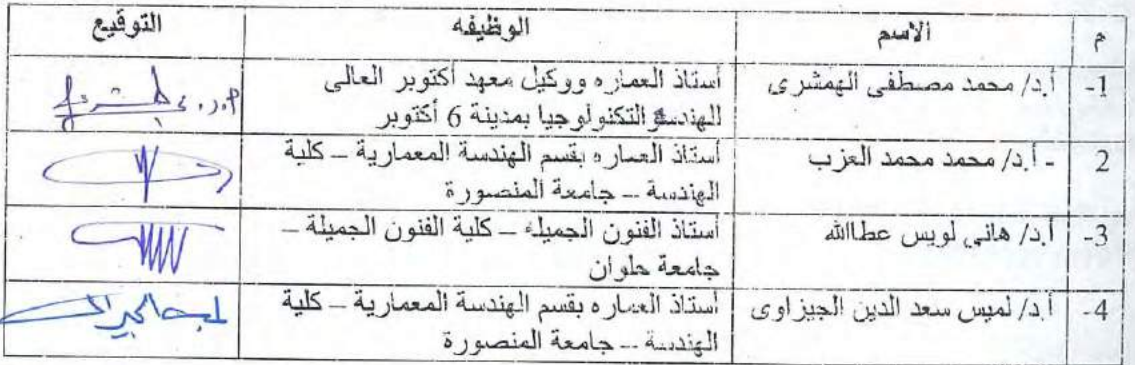 م الاسم الوظيفه التوقيع
1- أ.د/ محمد مصطفى الهمشرى أستاذ العماره ووكيل معهد أكتوبر العالى
للهندسة والتكنولوجيا بمدينة 6 أكتوبر
2 - أ.د/ محمد محمد العزب أستاذ العماره بقسم الهندسة المعمارية – كلية
الهندسة – جامعة المنصورة
3- أ.د/ هانى لويس عطاالله أستاذ الفنون الجميله – كلية الفنون الجميلة –
جامعة حلوان
4- أ.د/ لميس سعد الدين الجيزاوى أستاذ العماره بقسم الهندسة المعمارية – كلية
الهندسة – جامعة المنصورة